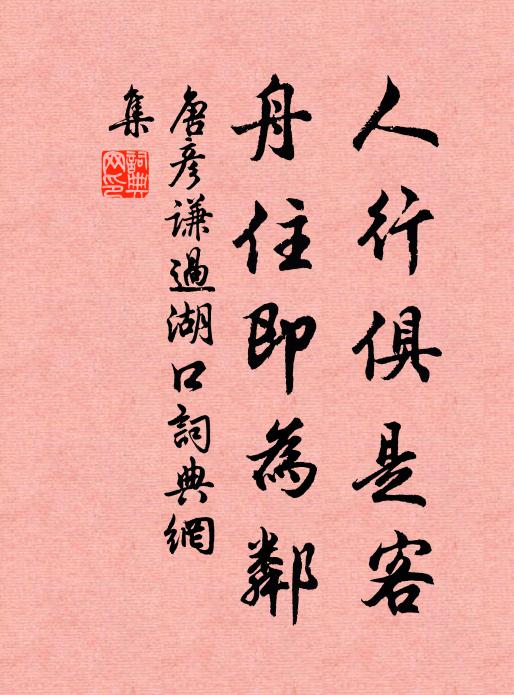 人行俱是客
舟住即為鄰
唐彥謙過湖口詞典網
集
詞典網印